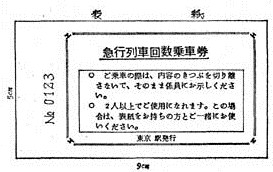 表紙
急行列車回数乗車券
○ ご乗車の際は、内容のきっぷを切り離
さないで、そのまま係員にお示しくださ
い。
○ 2人以上でご使用になれます。この場
合は、表紙をお持ちの方とご一緒にお使
いください。
東京 駅発行
№ 0123
5cm
9cm